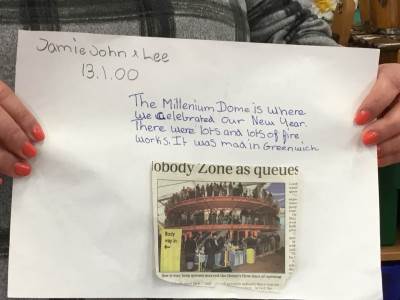 Jamie John & Lee
13.1.00
The Millenium Dome is where
we celebrated our New Year.
There were lots and lots of fire
works. It was mad in Greenwich
obody Zone as queues
Body
way in